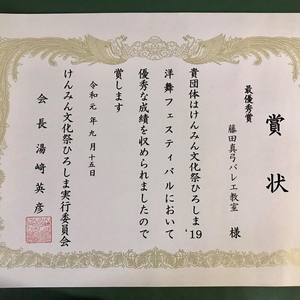 賞状
最優秀賞
藤田真弓バレエ教室 様
貴団体はけんみん文化祭ひろしま'19
洋舞フェスティバルにおいて
優秀な成績を収められましたので
賞します
令和元年九月十五日
けんみん文化祭ひろしま実行委員会
会長 湯﨑英彦